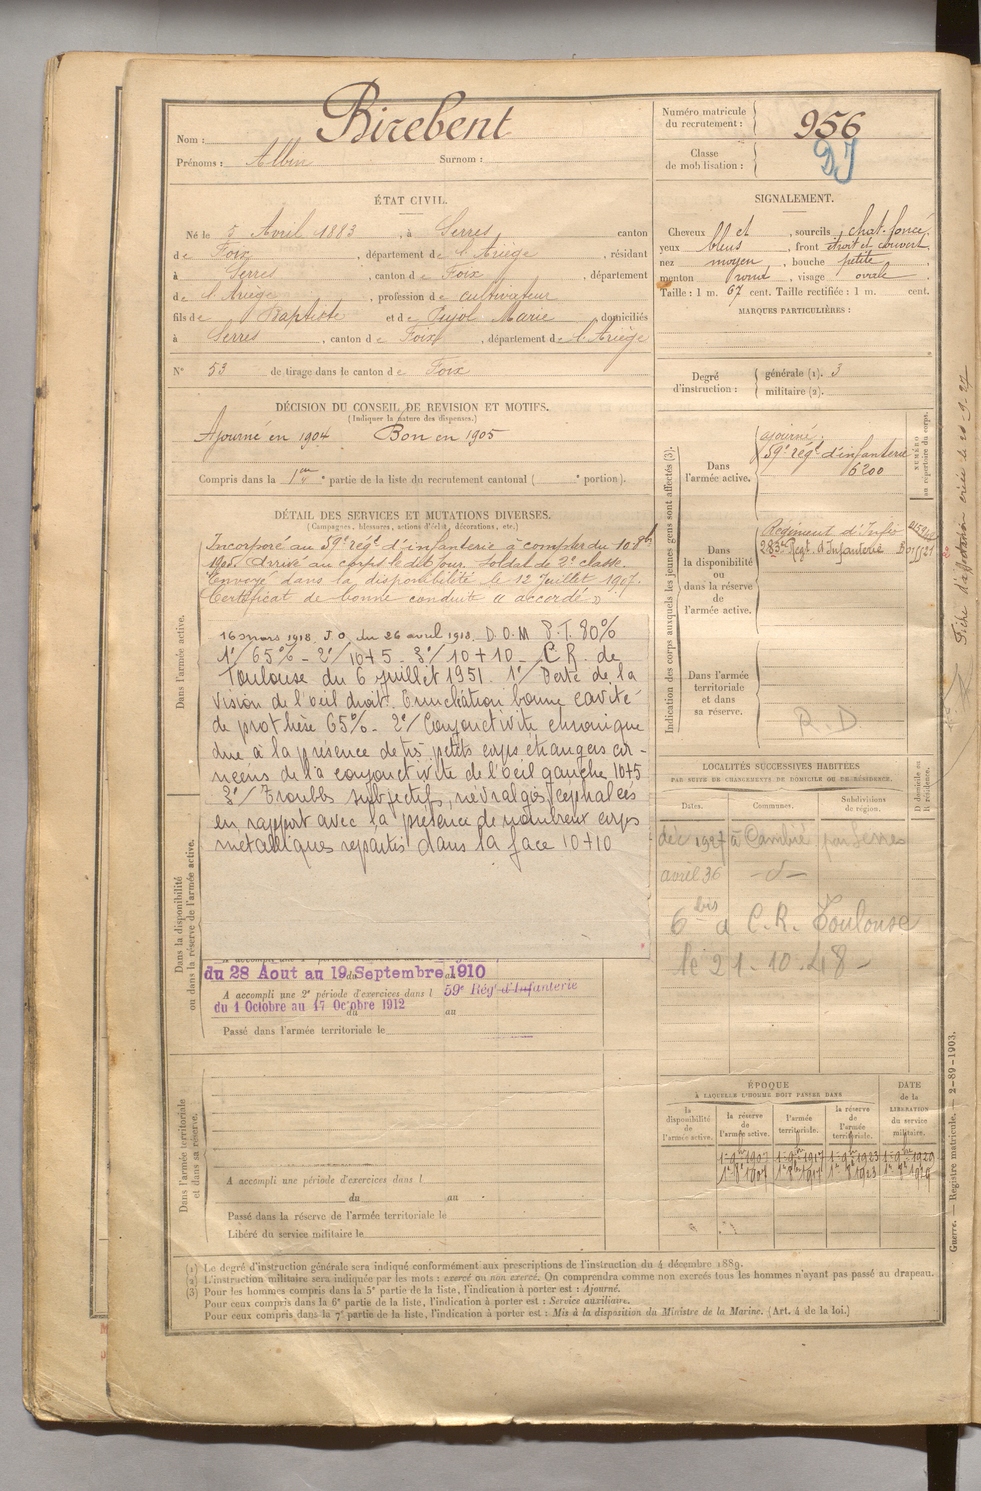 Nom : Birebent
Prénoms : Albin Surnom :
Numéro matricule du recrutement : 956
Classe de mobilisation :
ÉTAT CIVIL.
Né le 5 Avril 1883, à Serres, canton
de Foix, département de l'Ariège, résidant
à Serres, canton de Foix, département
de l'Ariège, profession de cultivateur
fils de Baptiste et de Pujol Marie, domiciliés
à Serres, canton de Foix, département de l'Ariège
N° 53 de tirage dans le canton de Foix
SIGNALEMENT.
Cheveux , sourcils chat. foncé,
yeux bleus, front étroit et couvert,
nez moyen, bouche petite,
menton rond, visage ovale
Taille : 1 m. 67 cent. Taille rectifiée : 1 m. cent.
MARQUES PARTICULIÈRES :
Degré d'instruction : générale (1). 3
militaire (2).
DÉCISION DU CONSEIL DE REVISION ET MOTIFS.
(Indiquer la nature des dispenses.)
Ajourné en 1904 Bon en 1905
Compris dans la 1re partie de la liste du recrutement cantonal ( portion).
DÉTAIL DES SERVICES ET MUTATIONS DIVERSES.
(Campagnes, blessures, actions d'éclat, décorations, etc.)
Dans l'armée active.
Incorporé au 59e régt d'infanterie à compter du 10 8bre
Arrivé au corps le dit jour. Soldat de 2e classe.
Envoyé dans la disponibilité le 12 Juillet 1907.
Certificat de bonne conduite "accordé"
16 mars 1918. J.O. du 26 avril 1918. D.O.M P.T. 80%
1°/ 65% - 2°/ 10+5 - 3°/ 10+10 - C.R. de
Toulouse du 6 juillet 1951. 1°/ Perte de la
vision de l'œil droit. Enucléation bonne cavité
de prothèse 65% - 2°/ Conjonctivite chronique
due à la présence de très petits corps étrangers
de la conjonctivite de l'œil gauche 10+5
3°/ Troubles subjectifs, névralgies, céphalées
en rapport avec la présence de nombreux corps
métalliques répartis dans la face 10+10
Dans la disponibilité
ou dans la réserve de l'armée active.
du 28 Aout au 19 Septembre 1910
A accompli une 2e période d'exercices dans l 59e Rég. d'Infanterie
du 1 Octobre au 17 Octobre 1912
du au
Passé dans l'armée territoriale le
Dans l'armée territoriale
et dans sa réserve.
A accompli une période d'exercices dans l
du au
Passé dans la réserve de l'armée territoriale le
Libéré du service militaire le
Indication des corps auxquels les jeunes gens sont affectés (3).
NUMÉRO
au répertoire du corps.
Dans l'armée active.
ajourné.
59e régt d'infanterie
6200
Dans la disponibilité ou dans la réserve de l'armée active.
Régiment d'Infie
283e Régt. d'Infanterie
Dans l'armée territoriale et dans sa réserve.
R.D
LOCALITÉS SUCCESSIVES HABITÉES
PAR SUITE DE CHANGEMENTS DE DOMICILE OU DE RÉSIDENCE.
Dates. Communes. Subdivisions de région. D domicile ou R résidence.
déc 1927 à Cambié par Serres
avril 36 -d-
6 bis a C.R. Toulouse
le 21-10-48
ÉPOQUE
À LAQUELLE L'HOMME DOIT PASSER DANS
DATE de la LIBÉRATION du service militaire.
la disponibilité de l'armée active.
la réserve de l'armée active.
l'armée territoriale.
la réserve de l'armée territoriale.
(1) Le degré d'instruction générale sera indiqué conformément aux prescriptions de l'instruction du 4 décembre 1889.
(2) L'instruction militaire sera indiquée par les mots : exercé ou non exercé. On comprendra comme non exercés tous les hommes n'ayant pas passé au drapeau.
(3) Pour les hommes compris dans la 5e partie de la liste, l'indication à porter est : Ajourné.
Pour ceux compris dans la 6e partie de la liste, l'indication à porter est : Service auxiliaire.
Pour ceux compris dans la 7e partie de la liste, l'indication à porter est : Mis à la disposition du Ministre de la Marine. (Art. 4 de la loi.)
Guerre. — Registre matricule. — 2-89-1903.